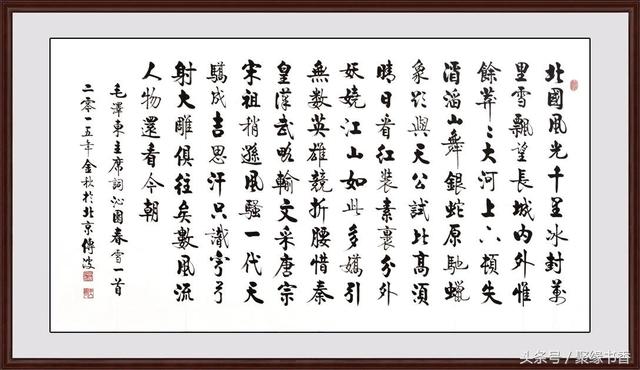 北國風光千里冰封萬
里雪飄望長城內外惟
餘莽々大河上下頓失
滔滔山舞銀蛇原馳蠟
象欲與天公試比高須
晴日看紅裝素裹分外
妖嬈江山如此多嬌引
無數英雄競折腰惜秦
皇漢武略輸文采唐宗
宋祖稍遜風騷一代天
驕成吉思汗只識彎弓
射大雕俱往矣數風流
人物還看今朝
毛澤東主席詞沁園春雪一首
二零一五年金秋於北京傅波
头条号／聚缘书香